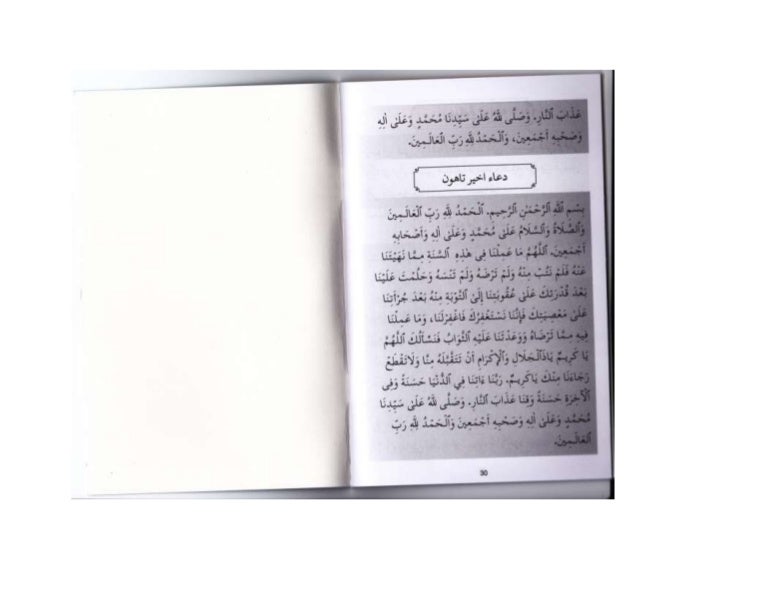 عَذَابَ ٱلنَّارِ. وَصَلَّى للهُ عَلَىٰ سَيِّدِنَا مُحَمَّدٍ وَعَلَىٰ اٰلِهِ
وَصَحْبِهِ اَجْمَعِينَ، وَٱلْحَمْدُ للهِ رَبِّ العَالَمِينَ.
دعاء اخير تاهون
بِسْمِ اللهِ ٱلرَّحْمٰنِ ٱلرَّحِيمِ. ٱلْحَمْدُ للهِ رَبِّ ٱلْعَالَمِينَ
وَٱلصَّلَاةُ وَٱلسَّلَامُ عَلَىٰ مُحَمَّدٍ وَعَلَىٰ اٰلِهِ وَاَصْحَابِهِ
اَجْمَعِينَ. اَللّٰهُمَّ مَا عَمِلْنَا فِى هٰذِهِ ٱلسَّنَةِ مِمَّا نَهَيْتَنَا
عَنْهُ فَلَمْ نَتُبْ مِنْهُ وَلَمْ تَرْضَهُ وَلَمْ تَنْسَهُ وَحَلُمْتَ عَلَيْنَا
بَعْدَ قُدْرَتِكَ عَلَىٰ عُقُوبَتِنَا إِلَى ٱلتَّوْبَةِ مِنْهُ بَعْدَ جُرْأَتِنَا
عَلَىٰ مَعْصِيَتِكَ فَإِنَّنَا نَسْتَغْفِرُكَ فَاغْفِرْلَنَا، وَمَا عَمِلْنَا
فِيهِ مِمَّا تَرْضَاهُ وَوَعَدْتَنَا عَلَيْهِ ٱلثَّوَابُ فَنَسْأَلُكَ ٱللّٰهُمَّ
يَا كَرِيمُ يَاذَٱلْجَلَالِ وَٱلْإِكْرَامِ أَنْ تَتَقَبَّلَهُ مِنَّا وَلَاتَقْطَعْ
رَجَاءَنَا مِنْكَ يَاكَرِيمُ. رَبَّنَا ءَاتِنَا فِي ٱلدُّنْيَا حَسَنَةً وَفِى
ٱلْآخِرَةِ حَسَنَةً وَقِنَا عَذَابَ ٱلنَّارِ. وَصَلَّى للهُ عَلَىٰ سَيِّدِنَا
مُحَمَّدٍ وَعَلَىٰ اٰلِهِ وَصَحْبِهِ اَجْمَعِينَ وَٱلْحَمْدُ للهِ رَبِّ
ٱلعَالَمِينَ.
30